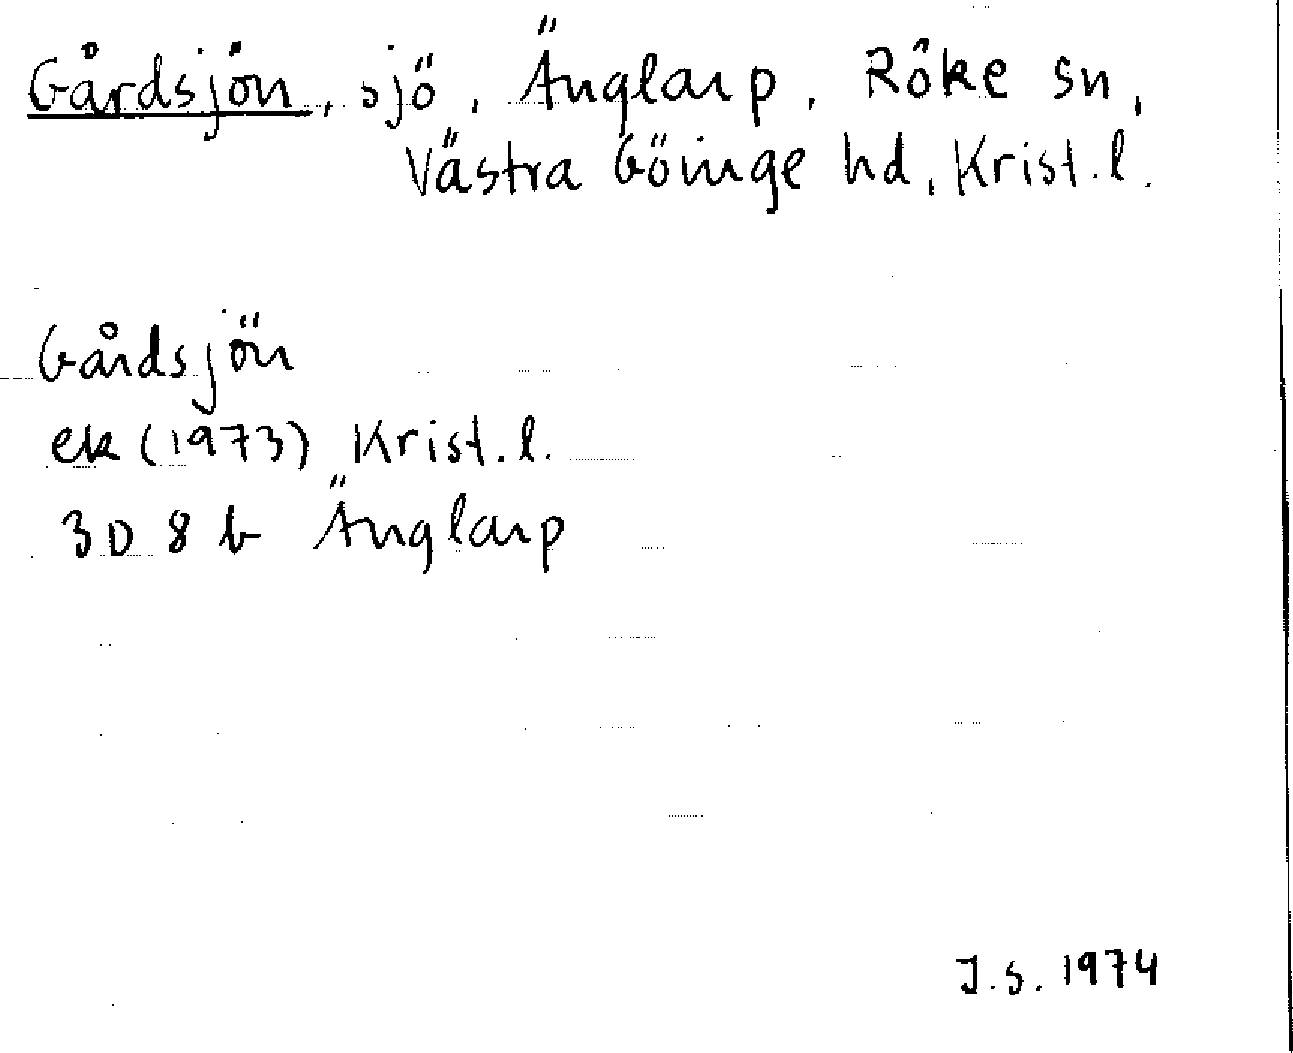 Gårdsjön, sjö, Änglarp, Röke sn,
Västra Göinge hd, Krist.l.
Gårdsjön
ek (1973) Krist.l.
3D 8 b Änglarp
J.S. 1974